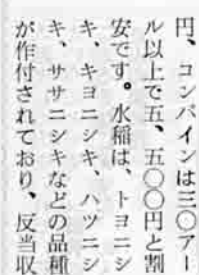 円、コンバインは三〇アー
ル以上で五、五〇〇円と割
安です。水稲は、トヨニシ
キ、キヨニシキ、ハツニシ
キ、ササニシキなどの品種
が作付されており、反当収